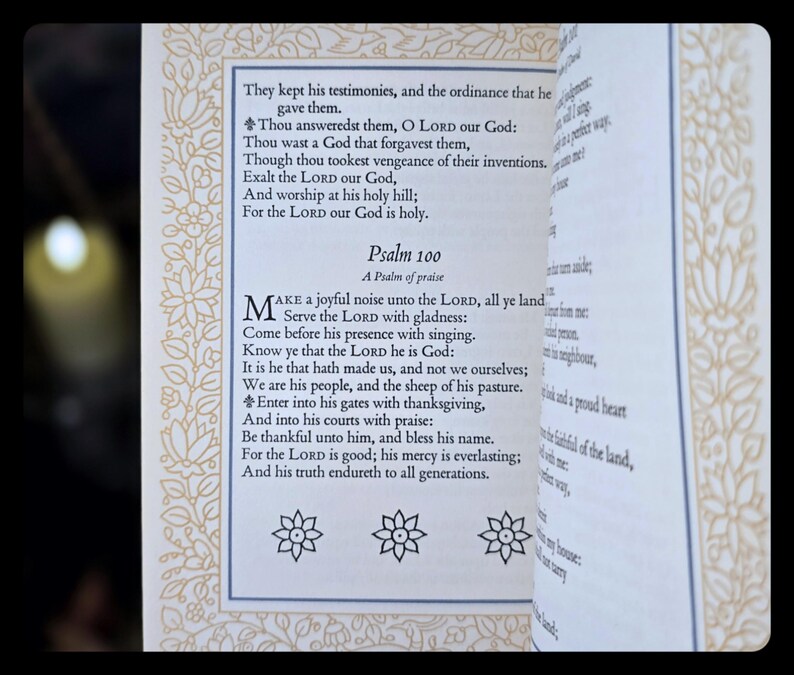 They kept his testimonies, and the ordinance that he
gave them.
Thou answeredst them, O LORD our God:
Thou wast a God that forgavest them,
Though thou tookest vengeance of their inventions.
Exalt the LORD our God,
And worship at his holy hill;
For the LORD our God is holy.
Psalm 100
A Psalm of praise
MAKE a joyful noise unto the LORD, all ye land
Serve the LORD with gladness:
Come before his presence with singing.
Know ye that the LORD he is God:
It is he that hath made us, and not we ourselves;
We are his people, and the sheep of his pasture.
Enter into his gates with thanksgiving,
And into his courts with praise:
Be thankful unto him, and bless his name.
For the LORD is good; his mercy is everlasting;
And his truth endureth to all generations.
judgment:
will I sing.
in a perfect way.
unto me?
house
that turn aside;
me.
from me:
person.
his neighbour,
look and a proud heart
the faithful of the land,
with me:
perfect way,
my house:
not tarry
the land;